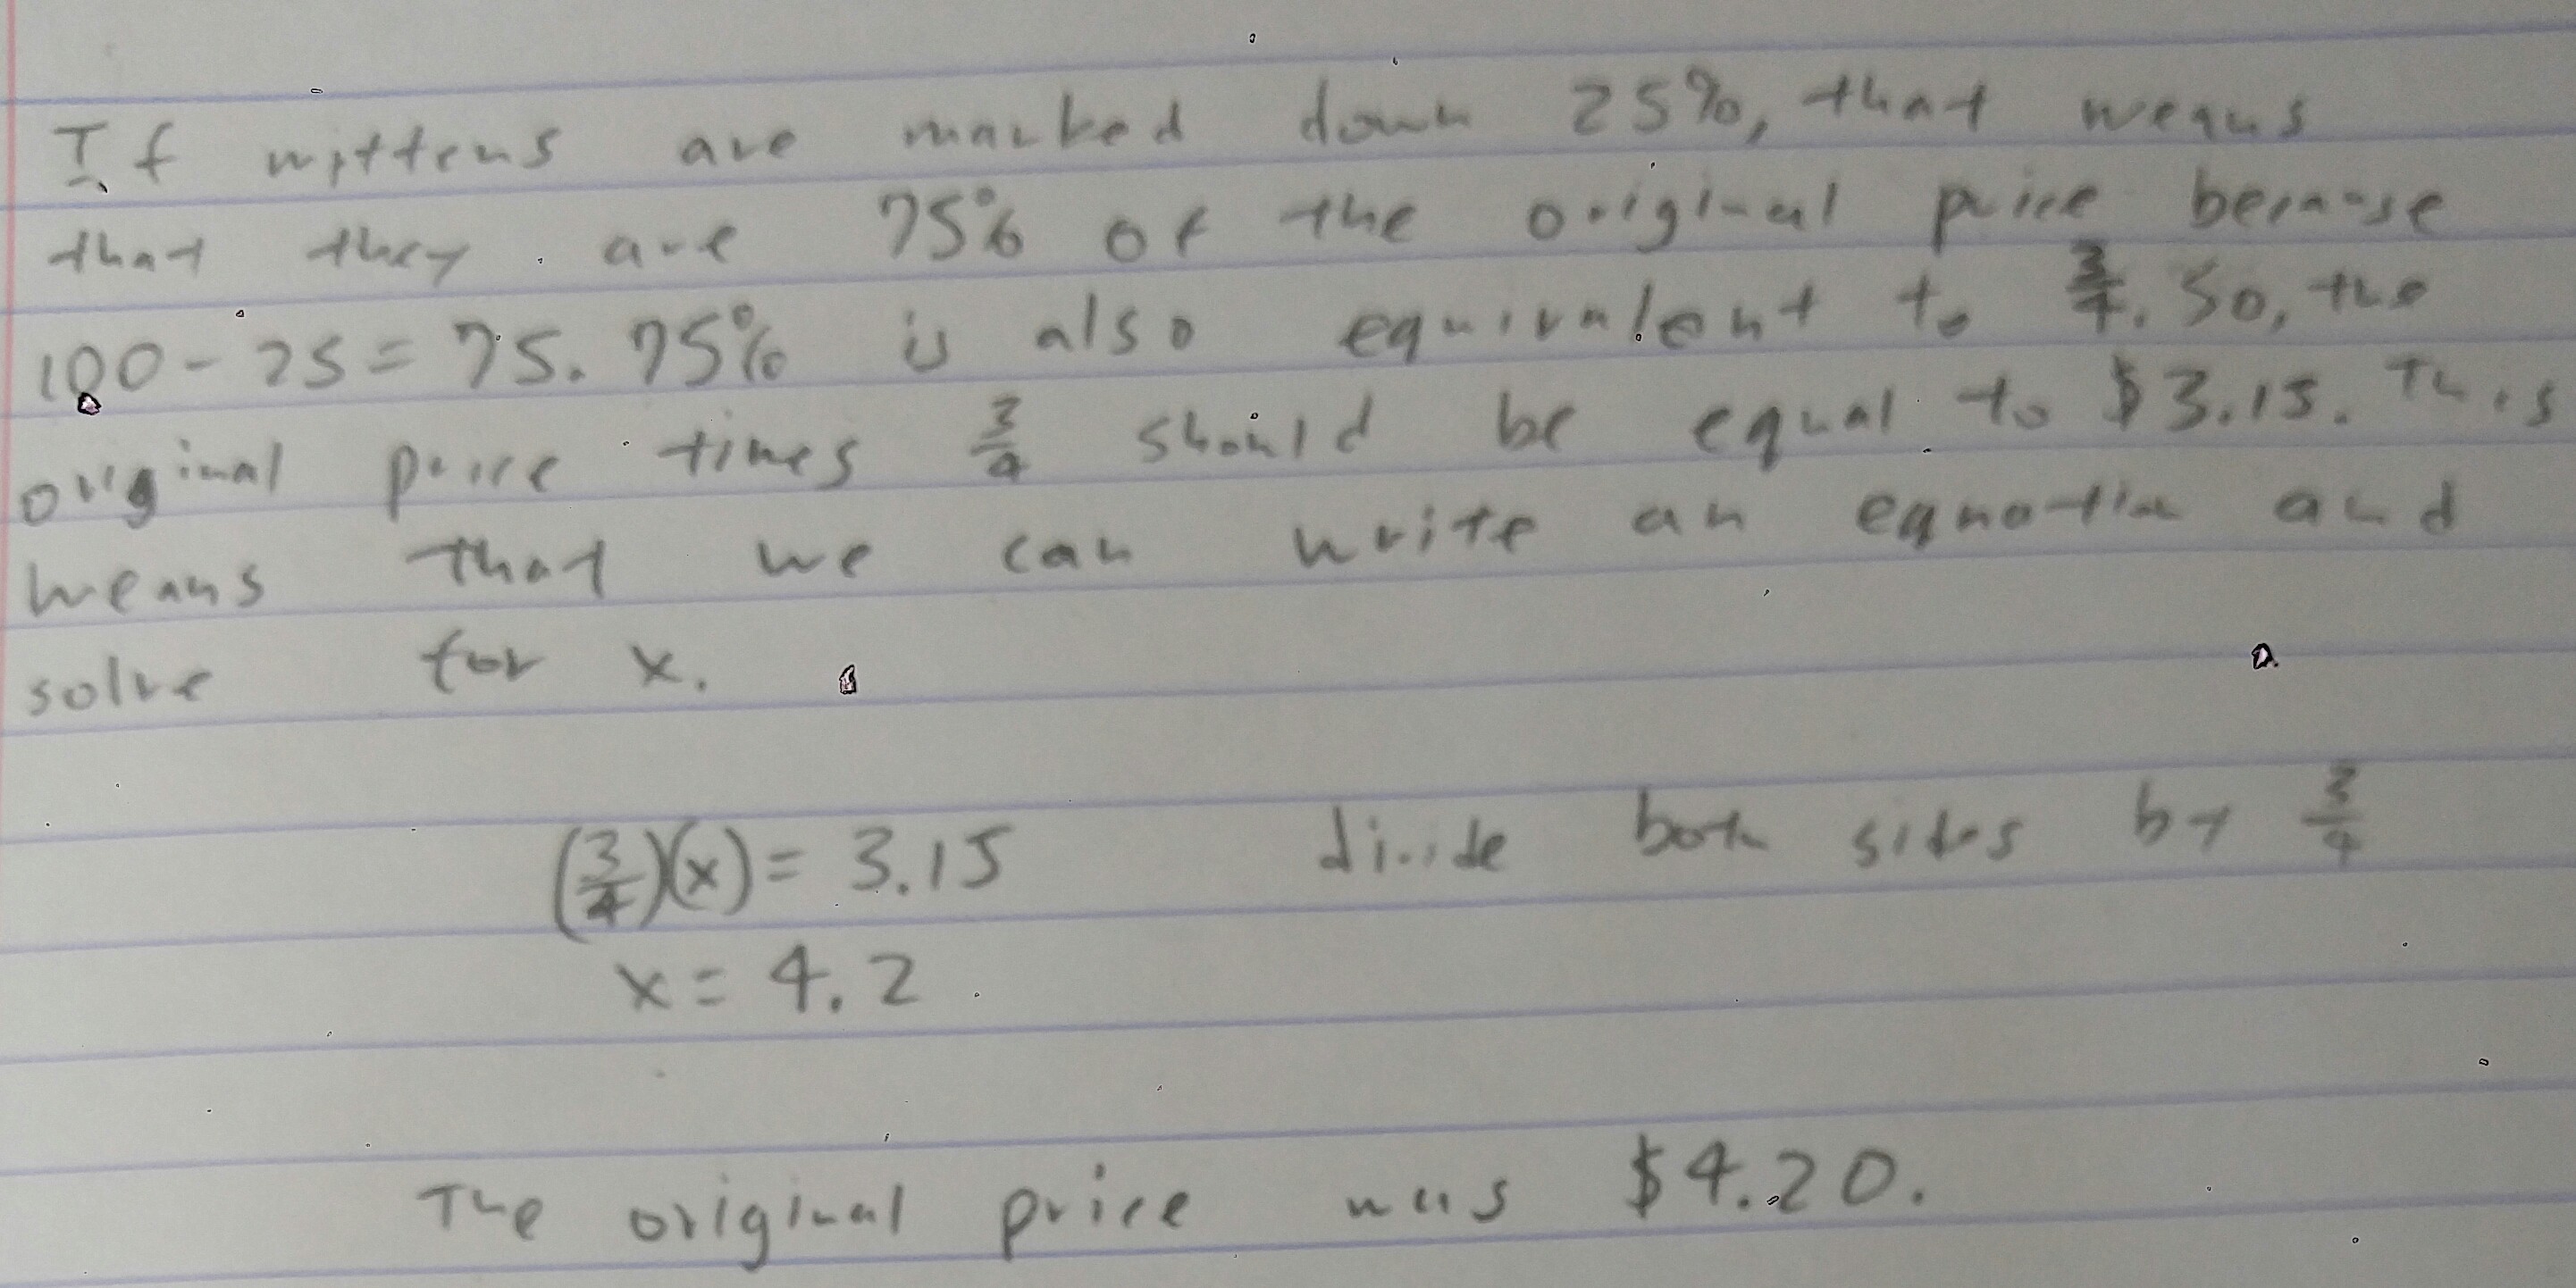 If mittens are marked down 25%, that means
that they are 75% of the original price because
100 - 25 = 75. 75% is also equivalent to 3/4. So, the
original price times 3/4 should be equal to $3.15. This
means that we can write an equation and
solve for x.
(3/4)(x) = 3.15 divide both sides by 3/4
x = 4.2
The original price was $4.20.